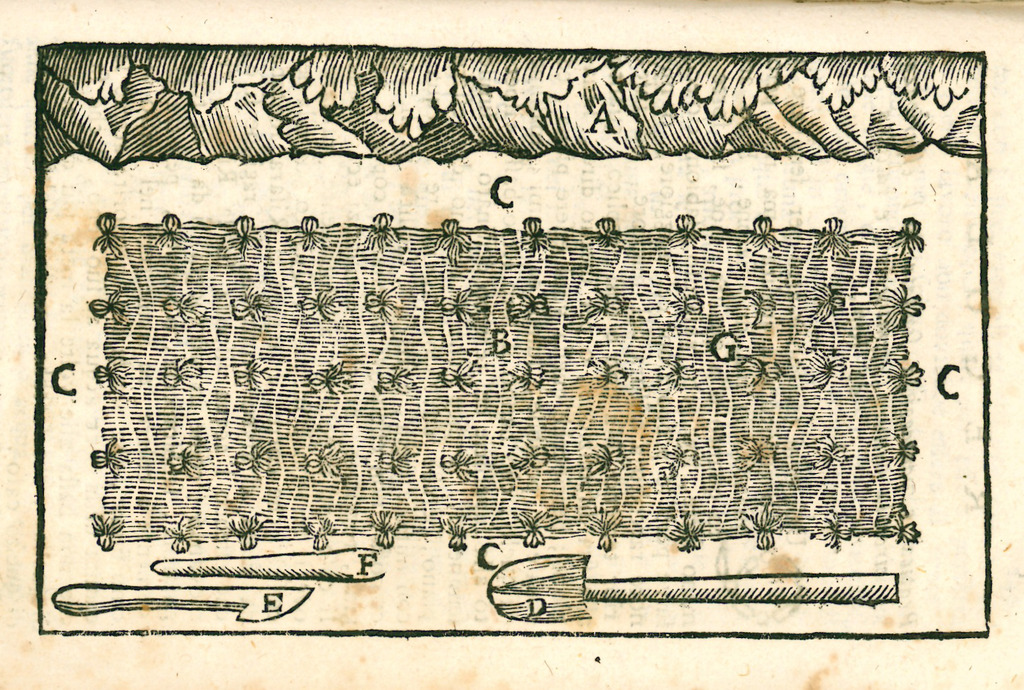 A
C
B
G
C
C
C
F
E
D